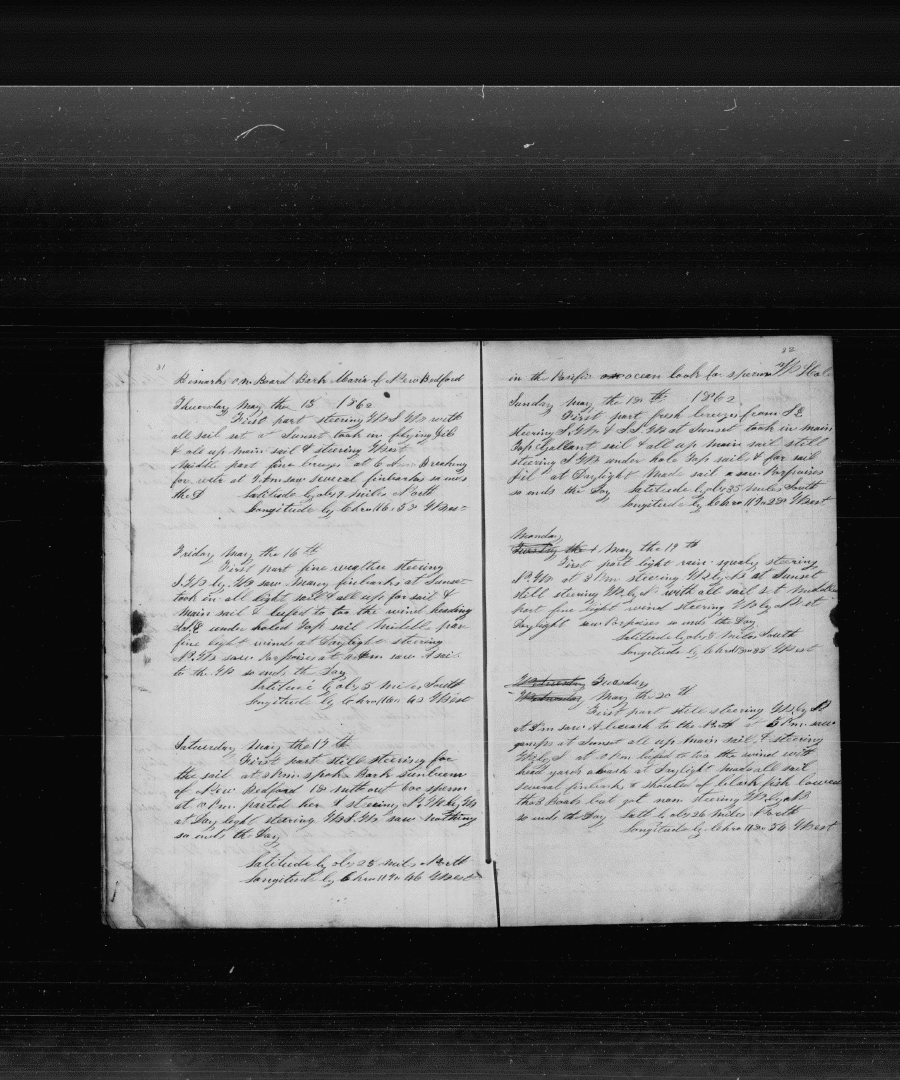 81
Remarks On Board Bark Maria of New Bedford
Thursday May the 15 1862
First part steering W S W with
all sail set at Sunset took in flying Jib
& all up main sail & steering West
Middle part fine breezes at 6 Breaching
for whale at 9 Am saw several finbacks so ends
the D Latitude by obs 9 miles North
Longitude by Chro 116 52 West
Friday May the 16 th
First part fine weather steering
S W by W saw many finbacks at Sunset
took in all light sail & all up for sail &
main sail & lufed to too the wind heading
S S E under Top sail Middle par
fine light winds at Daylight steering
N W saw Porpoises at Am saw A sail
to the W so ends the Day
Latitude by obs 5 miles South
Longitude by Chro 118 42 West
Saturday May the 17 th
First part still steering for
the sail at 3 Pm spoke Bark Sunbeam
of New Bedford 18 without 600 sperm
at 10 Pm parted her & steering N W by W
at Day light steering W S W saw nothing
so ends the Day
Latitude by obs 28 miles North
Longitude by Chro 119 46 West
82
in the Pacific ocean look for sperm
Sunday May the 18 th 1862
First part fresh breezes from S E
steering S W & S S W at Sunset took in main
Top Gallant sail & all up main sail still
steering S W under hole Top sails & for sail
Jib at Daylight Made sail saw Porpoises
so ends the Day Latitude by obs 35 miles South
Longitude by Chro 119 22 West
Monday
Tuesday the May the 19 th
First part light rain squaly steering
N W at 3 Pm steering W by N at Sunset
still steering W by N with all sail set Middle
part fine light wind steering W by N at
Daylight saw Porpoises so ends the Day
Latitude by obs 8 Miles South
Longitude by Chro 85 West
Wednesday Tuesday
Wednesday May the 20 th
First part still steering W by N
at 3 Pm saw A breach to the North at 5 Pm saw
gamps at Sunset all up Main sail & steering
W by S at Pm lufed to too the wind with
head yards aback at Daylight made all sail
several finbacks & shoules of black fish lowered
the 3 Boats but got non steering W by N
so ends the Day Latt by obs 26 miles North
Longitude by Chro 54 West